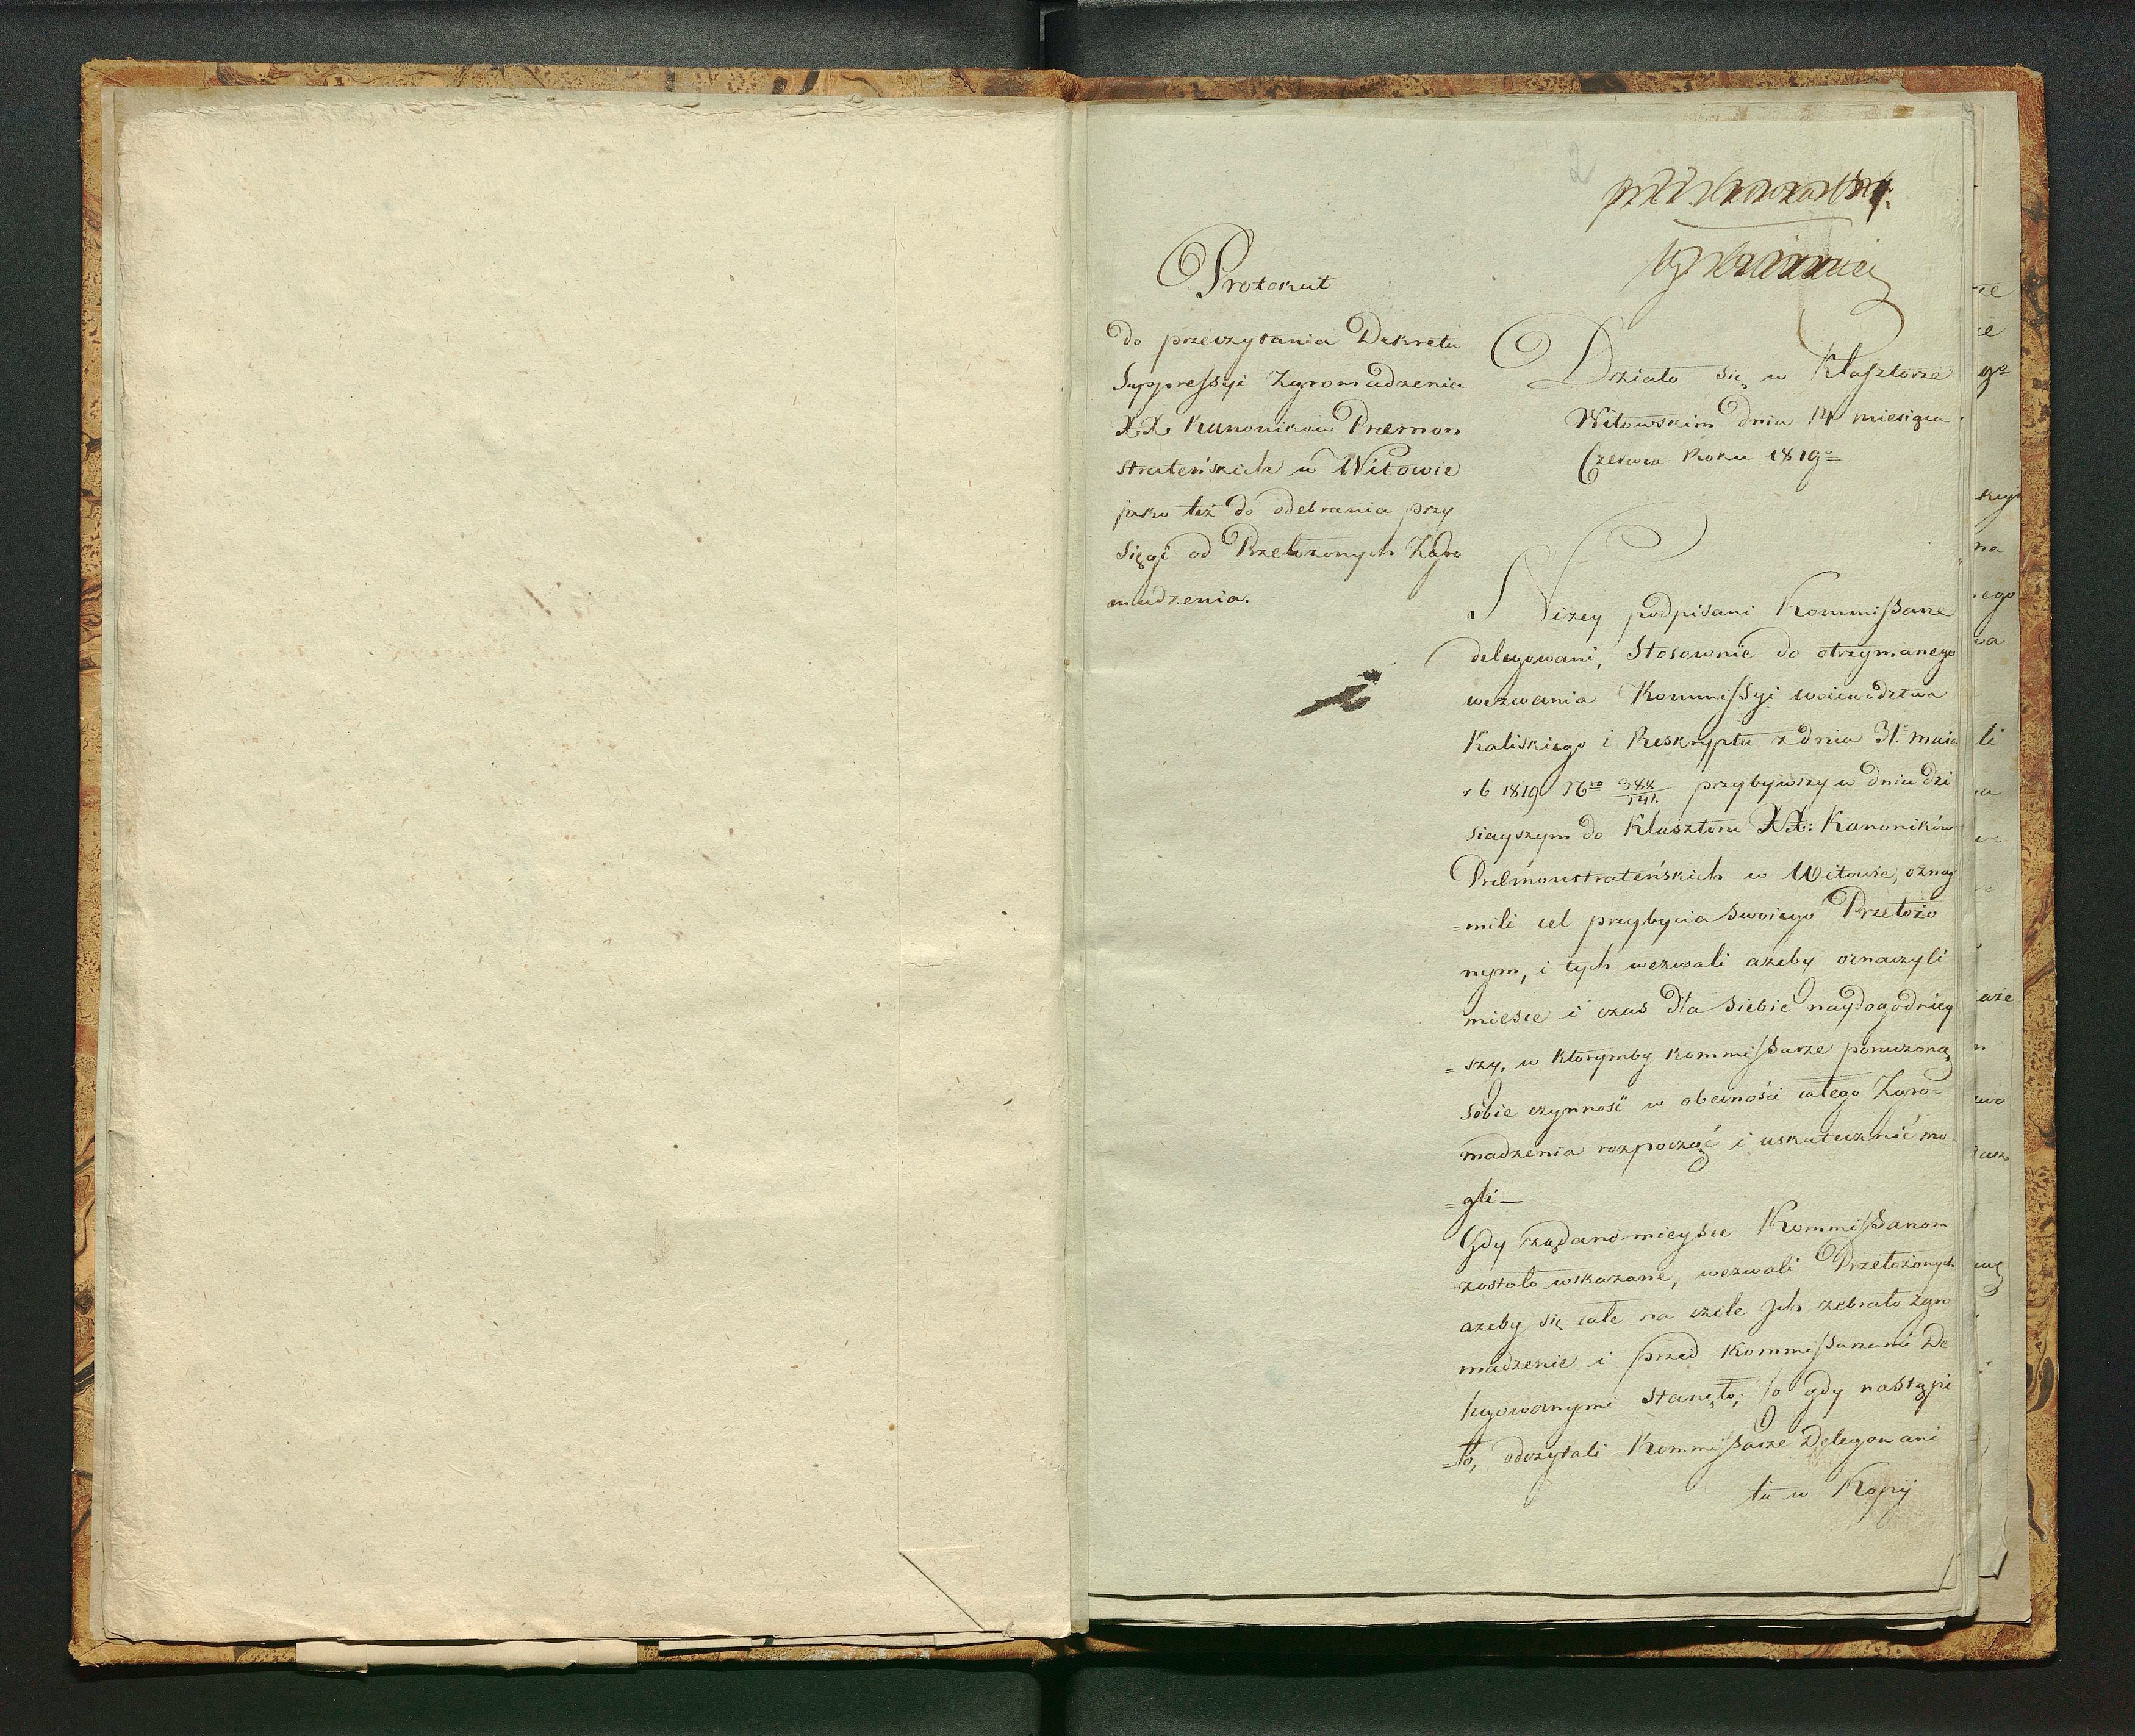 2
Protokuł
do przeczytania Dekretu
Suppressyi Zgromadzenia
XX. Kanonikow Præmon
strateńskich w Witowie
jako też do odebrania przy
sięgi od Przełożonych Zgro
madzenia.
Działo się w Klasztorze
Witowskim dnia 14 miesiąca
Czerwca Roku 1819
Niżey podpisani Kommissarze
delegowani, Stosownie do otrzymanego
wezwania Kommissyi woiewodztwa
Kaliskiego i Reskryptu z dnia 31. maia
r b 1819 N 388/141. przybywszy w dniu dzi
sieyszym do Klasztoru XX: Kanoników
Præmonstrateńskich w Witowie, oznay
=mili cel przybycia Swoiego Przełożo
nym, i tych wezwali ażeby oznaczyli
miesce i czas dla Siebie naydogodniey
=szy, w ktorymby kommissarze poruczoną
Sobie czynność w obecności całego Zgro=
madzenia rozpocząć i uskutecznić mo
=gli —
Gdy żądane mieysce Kommissarzom
zostało wskazane, wezwali Przełożonych
ażeby się całe na czele Ich zebrało zgro
madzenie i przed Kommissarzami De
legowanymi Stanęło; to gdy nastąpi
=ło, odczytali Kommissarze Delegowani
tu w Kopij